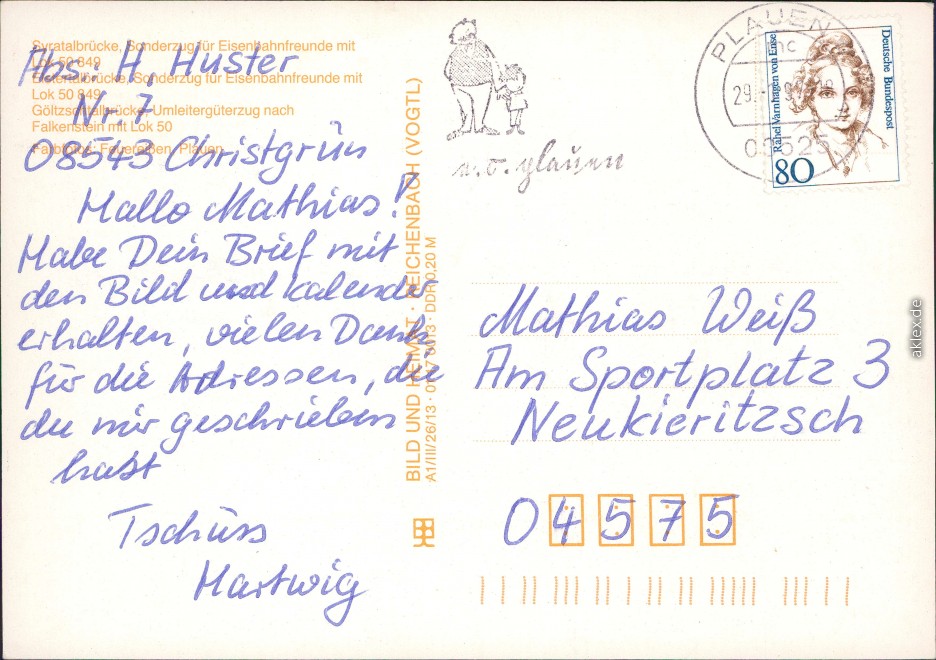 Syratalbrücke, Sonderzug für Eisenbahnfreunde mit
Lok 50 849
Elstertalbrücke, Sonderzug für Eisenbahnfreunde mit
Lok 50 849
Göltzschtalbrücke, Umleitergüterzug nach
Falkenstein mit Lok 50
Farbfotos: Feuereißen, Plauen
Abs.: H. Huster
Nr. 7
08543 Christgrün
Hallo Mathias!
Habe Dein Brief mit
den Bild und kalender
erhalten, vielen Dank
für die Adressen, die
du mir geschrieben
hast
Tschüss
Hartwig
BILD UND HEIMAT · REICHENBACH (VOGTL)
A1/III/26/13 DDR 0,20 M
e.o. plauen
PLAUEN
nc
29.
Deutsche Bundespost
Rahel Varnhagen von Ense
80
Mathias Weiß
Am Sportplatz 3
Neukieritzsch
04575
aklex.de